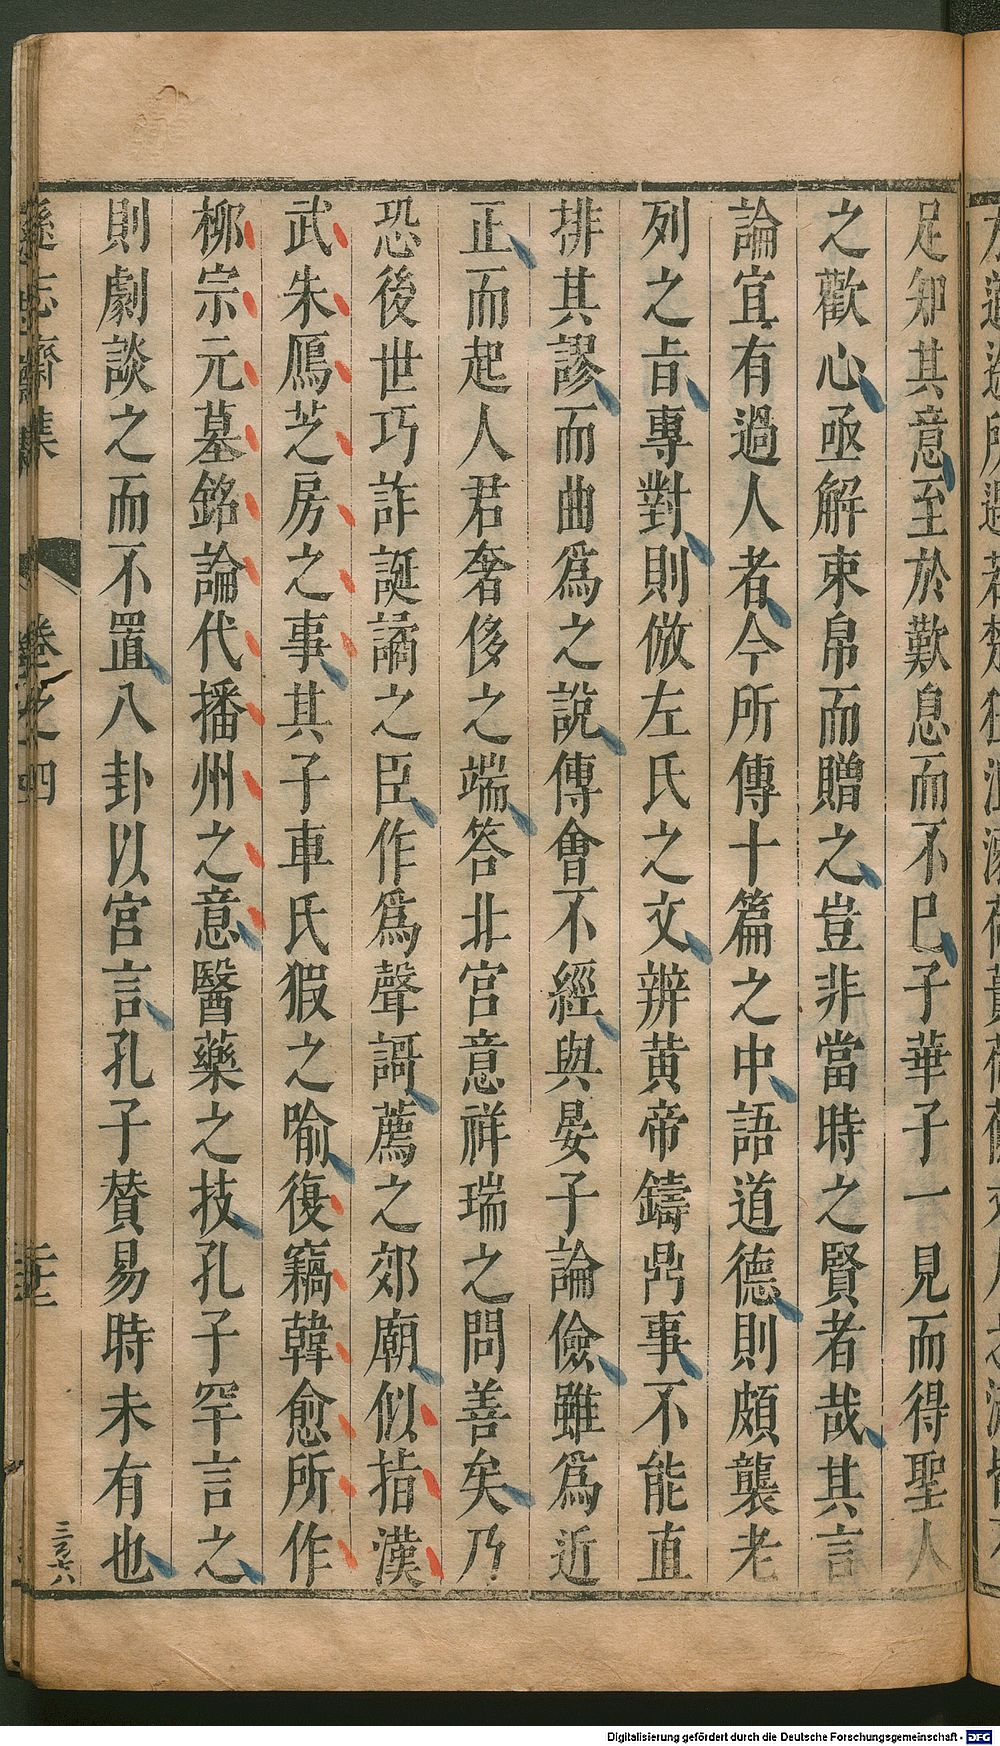 足知其意至於歎息而不已子華子一見而得聖人
之歡心亟解束帛而贈之豈非當時之賢者哉其言
論宜有過人者今所傳十篇之中語道德則頗襲老
列之㫖專對則倣左氏之文辨黄帝鑄鼎事不能直
排其謬而曲爲之說傳會不經與晏子論儉雖爲近
正而起人君奢侈之端答北宮意祥瑞之問善矣乃
恐後世巧詐誕譎之臣作爲聲謌薦之郊廟似指漢
武朱鴈芝房之事其子車氏猳之喻復竊韓愈所作
柳宗元墓銘論代播州之意醫藥之技孔子罕言之
則劇談之而不置八卦以宮言孔子賛易時未有也
遜志齋集
卷之四
二十三
Digitalisierung gefördert durch die Deutsche Forschungsgemeinschaft - DFG